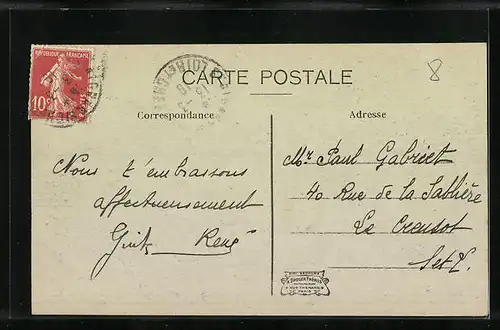 RÉPUBLIQUE FRANÇAISE
10c
8
CARTE POSTALE
Correspondance
Adresse
Nous t'embrassons
affectueusement
René
Mr Paul Gabriet
40 Rue de la Sablière
Le Creusot
S et L.